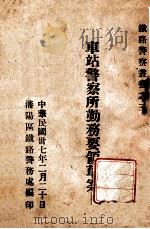 鐵路警察叢書之
車站警察所勤務要領草案
中華民國卅七年二月二十日
瀋陽區鐵路警務處編印